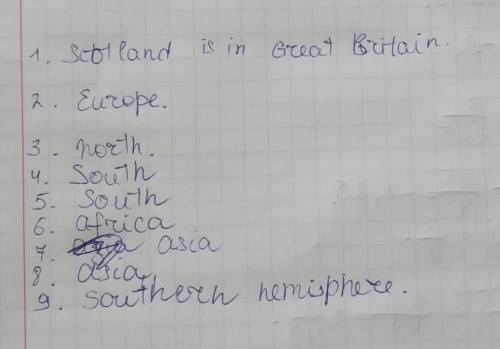 1. Scotland is in Great Britain.
2. Europe.
3. north.
4. South
5. South
6. africa
7. asia
8. asia
9. Southern hemisphere.